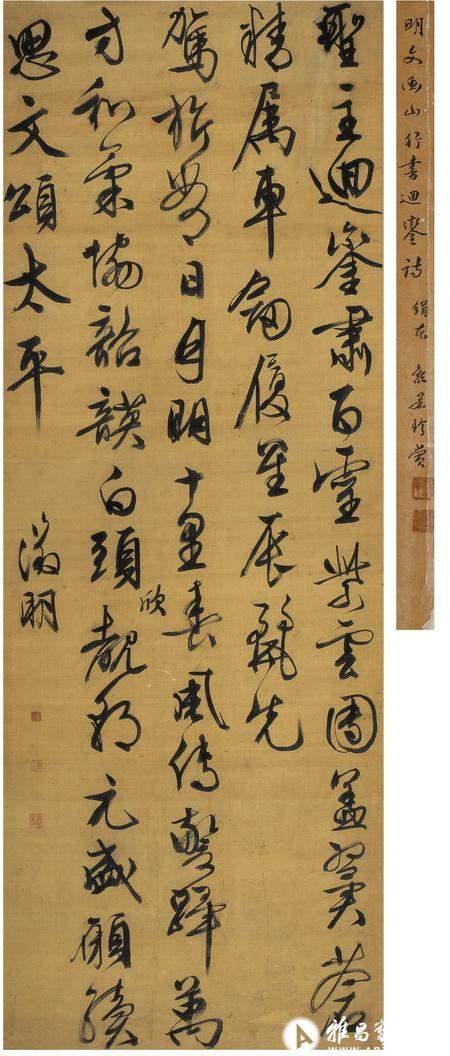 聖主迴鑾肅百靈紫雲團蓋翼蒼
精属車劍履星辰麗先
駕旂常日月明十里春風傳警蹕萬
方和氣協韶韺白頭欣覩朝元盛願續
思文頌太平
徵明
明文衡山行書迴鑾詩 絹本
珍賞
雅昌